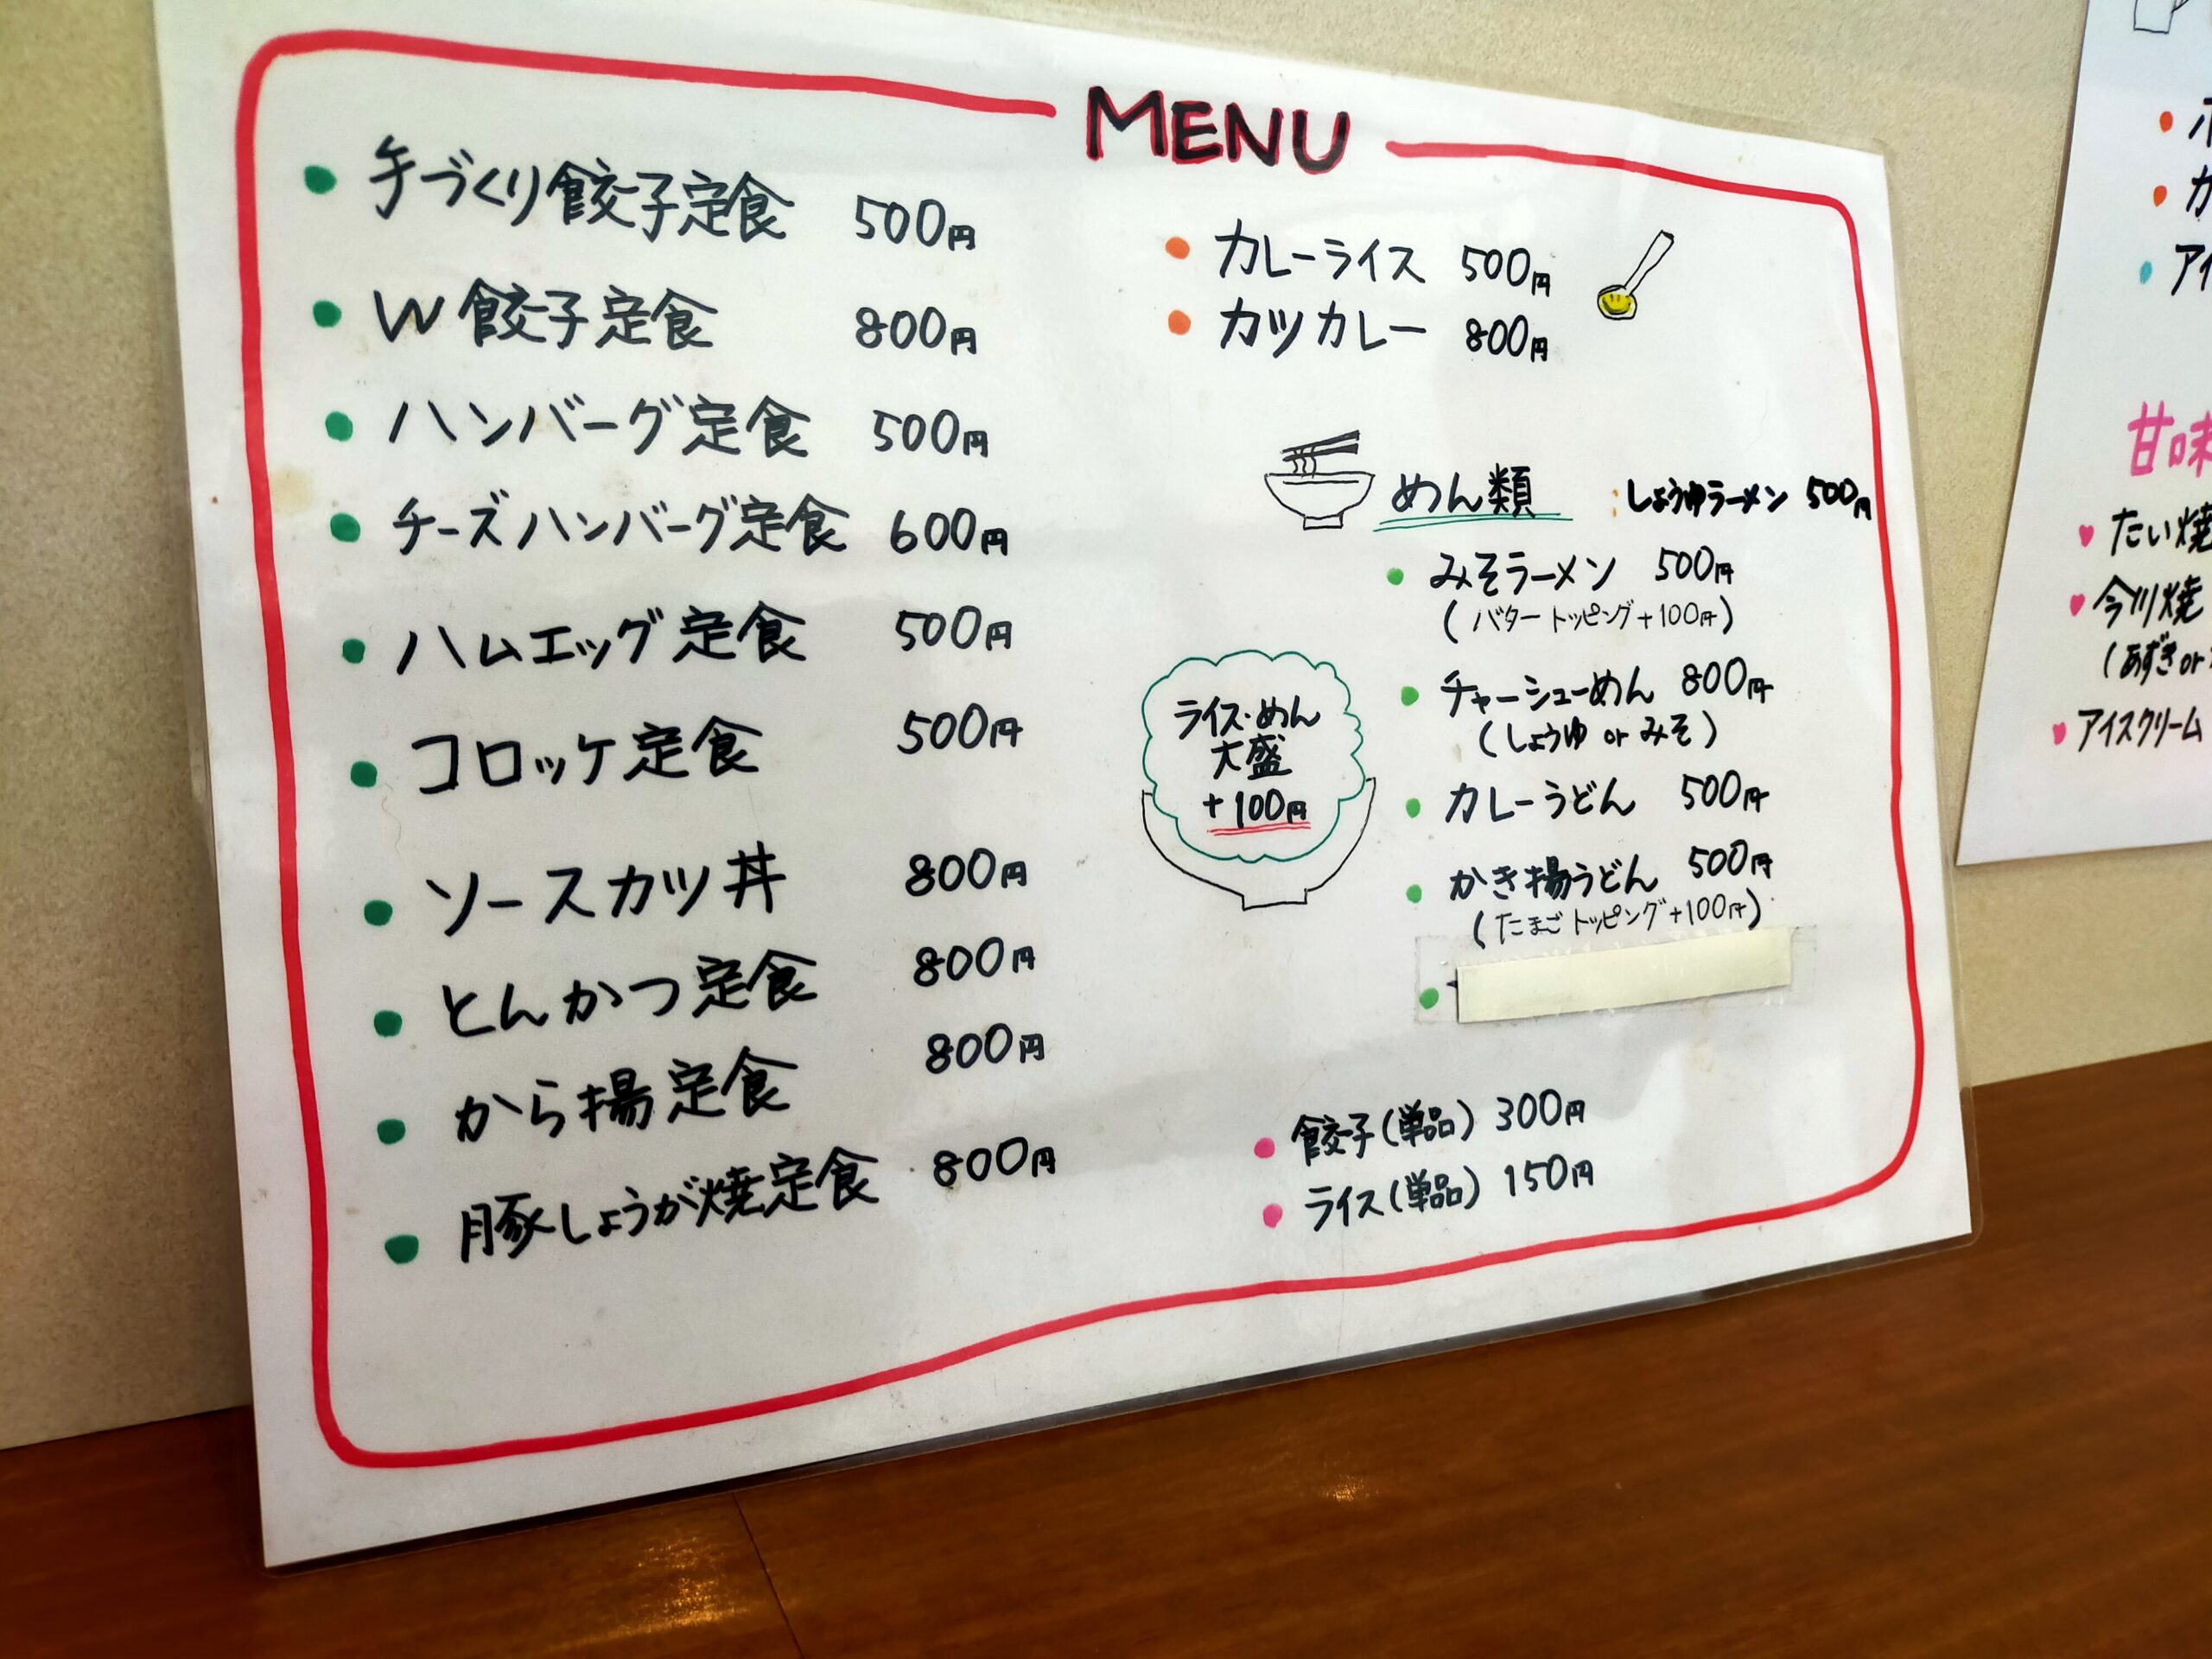 MENU
手づくり餃子定食 500円
W餃子定食 800円
ハンバーグ定食 500円
チーズハンバーグ定食 600円
ハムエッグ定食 500円
コロッケ定食 500円
ソースカツ丼 800円
とんかつ定食 800円
から揚定食 800円
豚しょうが焼定食 800円
カレーライス 500円
カツカレー 800円
めん類
しょうゆラーメン 500円
みそラーメン 500円
(バタートッピング+100円)
チャーシューめん 800円
(しょうゆ or みそ)
カレーうどん 500円
かき揚うどん 500円
(たまごトッピング+100円)
ライス・めん
大盛
+100円
餃子(単品) 300円
ライス(単品) 150円
甘味
たい焼
今川焼
(あずき or
アイスクリーム